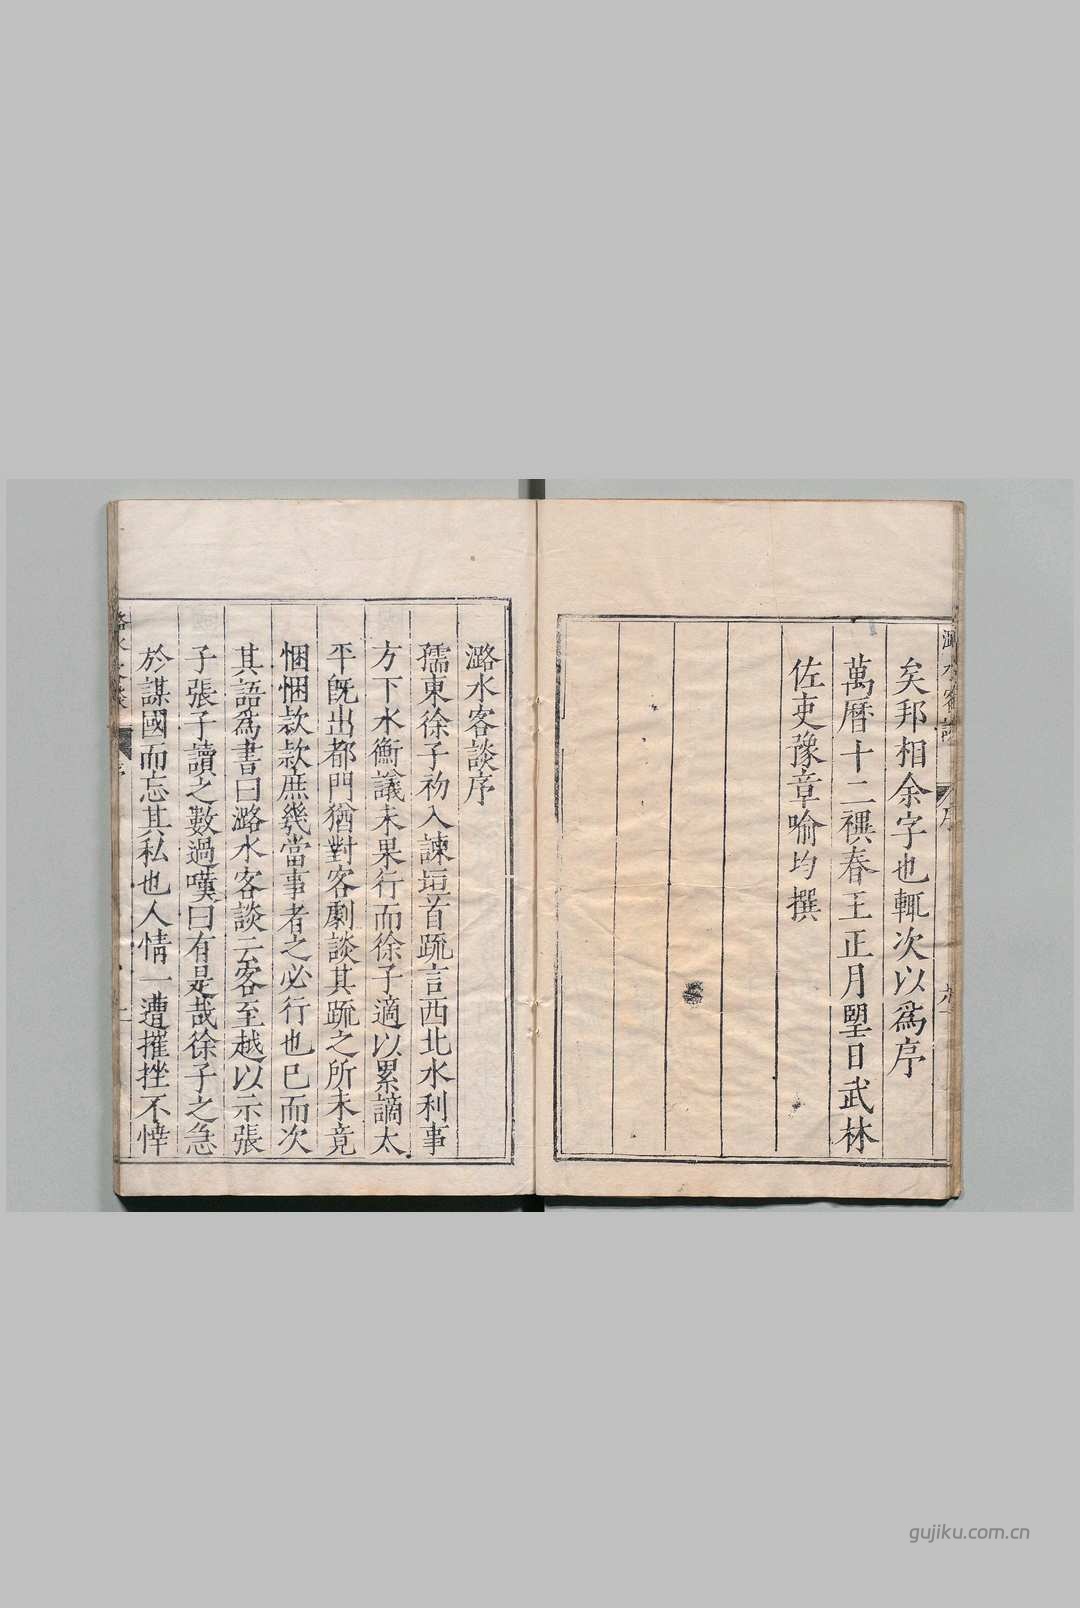 矣邦相余字也輒次以爲序
萬曆十二禩春王正月朢日武林
佐吏豫章喻均撰
潞水客談序
孺東徐子初入諫垣首疏言西北水利事
方下水衡議未果行而徐子適以累謫太
平旣出都門猶對客劇談其疏之所未竟
悃悃款款庶幾當事者之必行也已而次
其語爲書曰潞水客談云客至越以示張
子張子讀之數過嘆曰有是哉徐子之急
於謀國而忘其私也人情一遭摧挫不悻
gujiku.com.cn